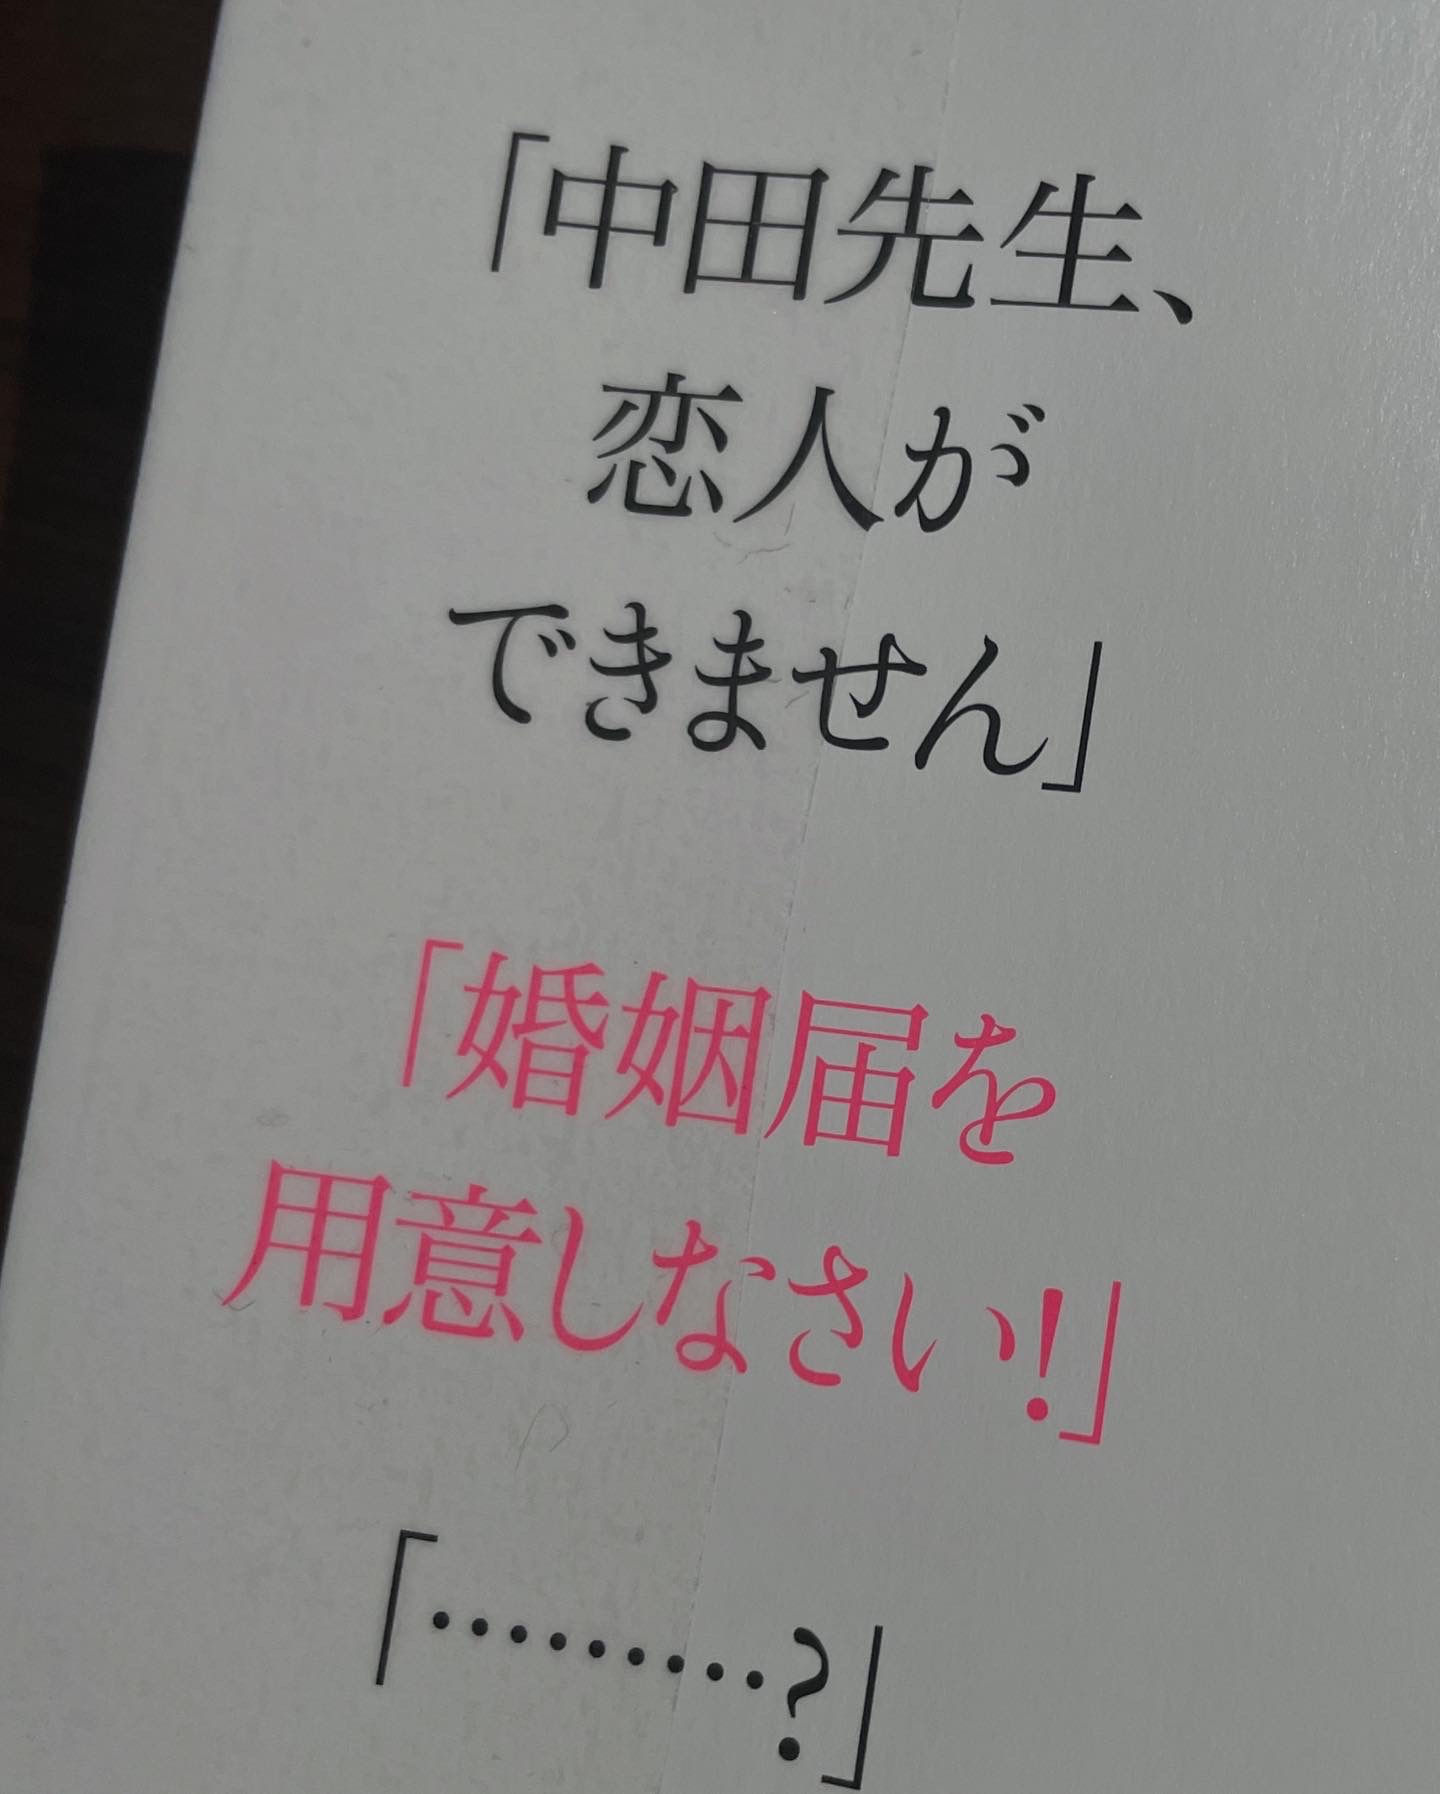 「中田先生、
恋人が
できません」
「婚姻届を
用意しなさい!」
「………?」